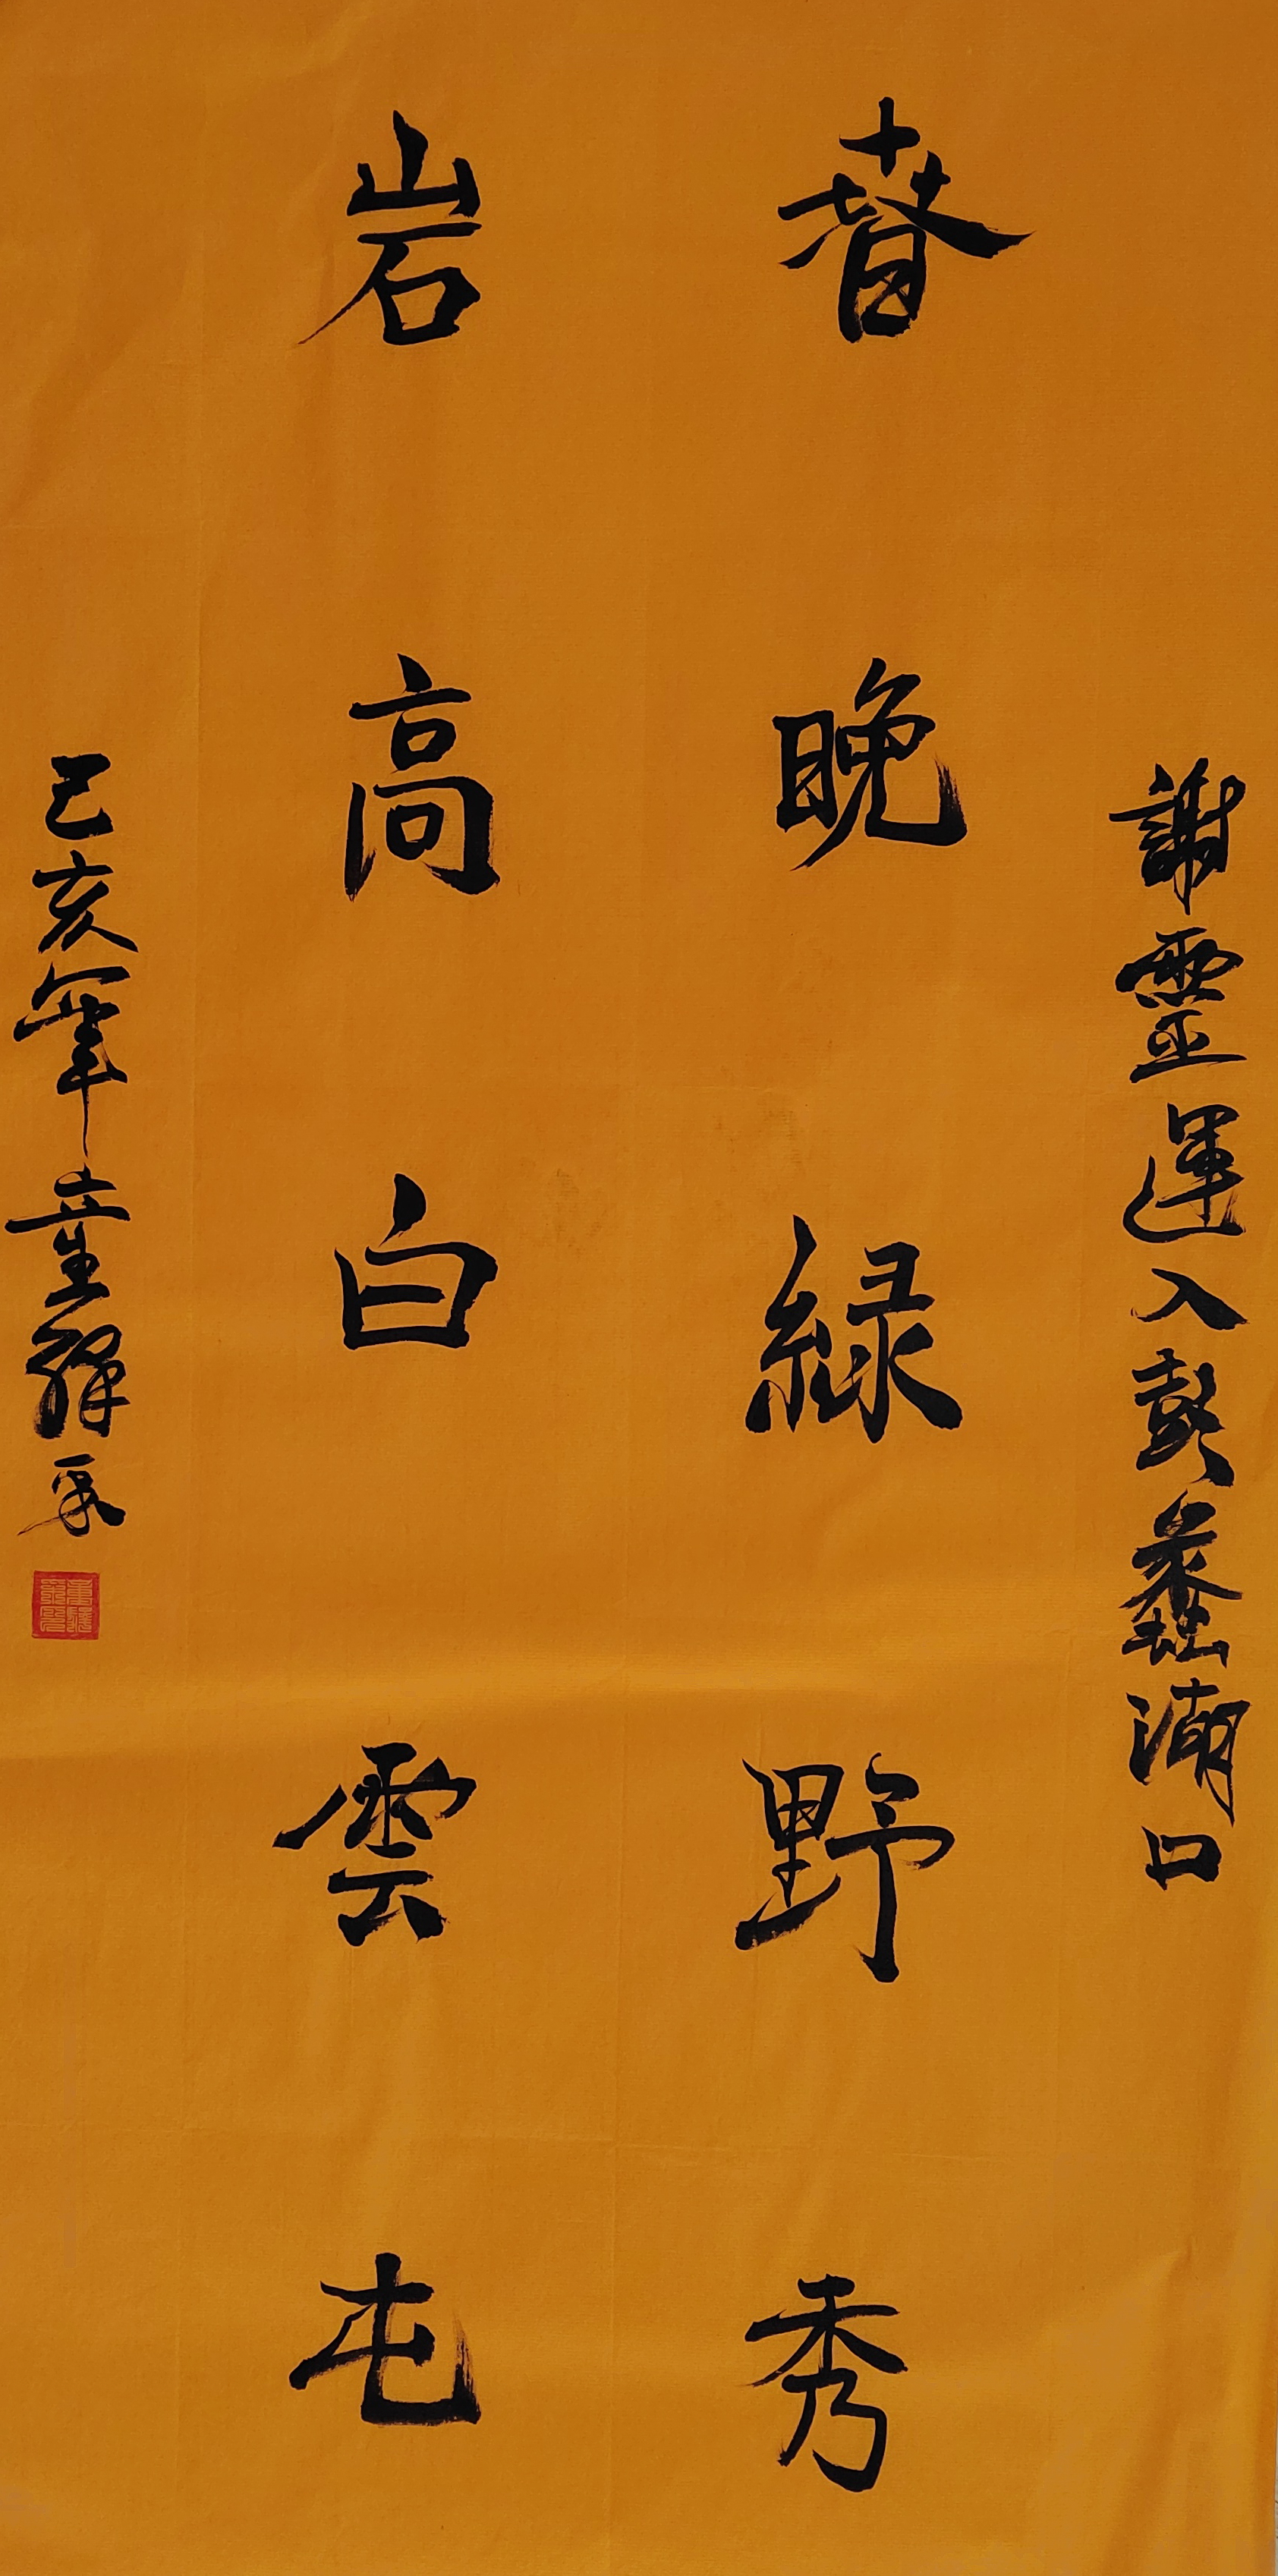 謝靈運入彭蠡湖口
春晚緑野秀
岩高白雲屯
己亥年童輝